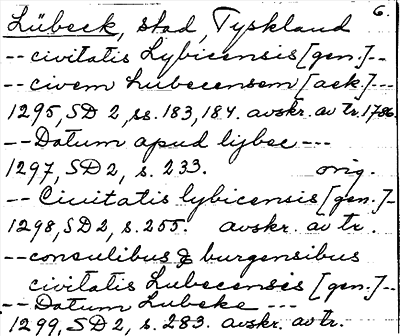 6.
Lübeck, stad, Tyskland
-- civitatis Lybicensis [gen.] --
-- civem Lubecensem [ack.] ---
1295, SD 2, ss. 183, 184. avskr. av tr. 1786.
-- Datum apud lijbec ---
1297, SD 2, s. 233. orig.
-- Ciuitatis lybicensis [gen.] -
1298, SD 2, s. 255. avskr. av tr.
-- consulibus & burgensibus
civitatis Lubecensis [gen.] --
-- Datum Lubeke ---
1299, SD 2, s. 283. avskr. av tr.